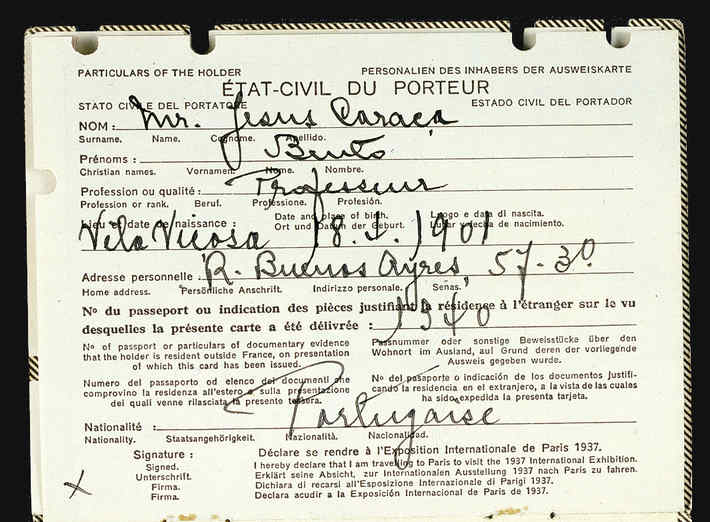 PARTICULARS OF THE HOLDER PERSONALIEN DES INHABERS DER AUSWEISKARTE
ÉTAT-CIVIL DU PORTEUR
STATO CIVILE DEL PORTATORE ESTADO CIVIL DEL PORTADOR
NOM : Mr. Jesus Caraça
Surname. Name. Cognome. Apellido.
Prénoms : Bento
Christian names. Vornamen. Nome. Nombre.
Profession ou qualité : Professeur
Profession or rank. Beruf. Professione. Profesión.
Lieu et date de naissance : Date and place of birth. Luogo e data di nascita.
Ort und Datum der Geburt. Lugar y fecha de nacimiento.
Vila Viçosa 18. 4. 1901
Adresse personnelle : R. Buenos Ayres, 57-3º
Home address. Persönliche Anschrift. Indirizzo personale. Señas.
Nº du passeport ou indication des pièces justifiant la résidence à l'étranger sur le vu
desquelles la présente carte a été délivrée : 1340
Nº of passport or particulars of documentary evidence
that the holder is resident outside France, on presentation
of which this card has been issued.
Passnummer oder sonstige Beweisstücke über den
Wohnort im Ausland, auf Grund deren der vorliegende
Ausweis gegeben wurde.
Numero del passaporto od elenco dei documenti che
comprovino la residenza all'estero e sulla presentazione
dei quali venne rilasciata la presente tessera.
Nº del pasaporte o indicación de los documentos justifi-
cando la residencia en el extranjero, a la vista de las cuales
ha sido expedida la presente tarjeta.
Nationalité : Portugaise
Nationality. Staatsangehörigkeit. Nazionalità. Nacionalidad.
Signature : Déclare se rendre à l'Exposition Internationale de Paris 1937.
Signed. I hereby declare that I am travelling to Paris to visit the 1937 International Exhibition.
Unterschrift. Erklärt seine Absicht, zur Internationalen Ausstellung 1937 nach Paris zu fahren.
Firma. Dichiara di recarsi all'Esposizione Internazionale di Parigi 1937.
Firma. Declara acudir a la Exposición Internacional de Paris de 1937.
x